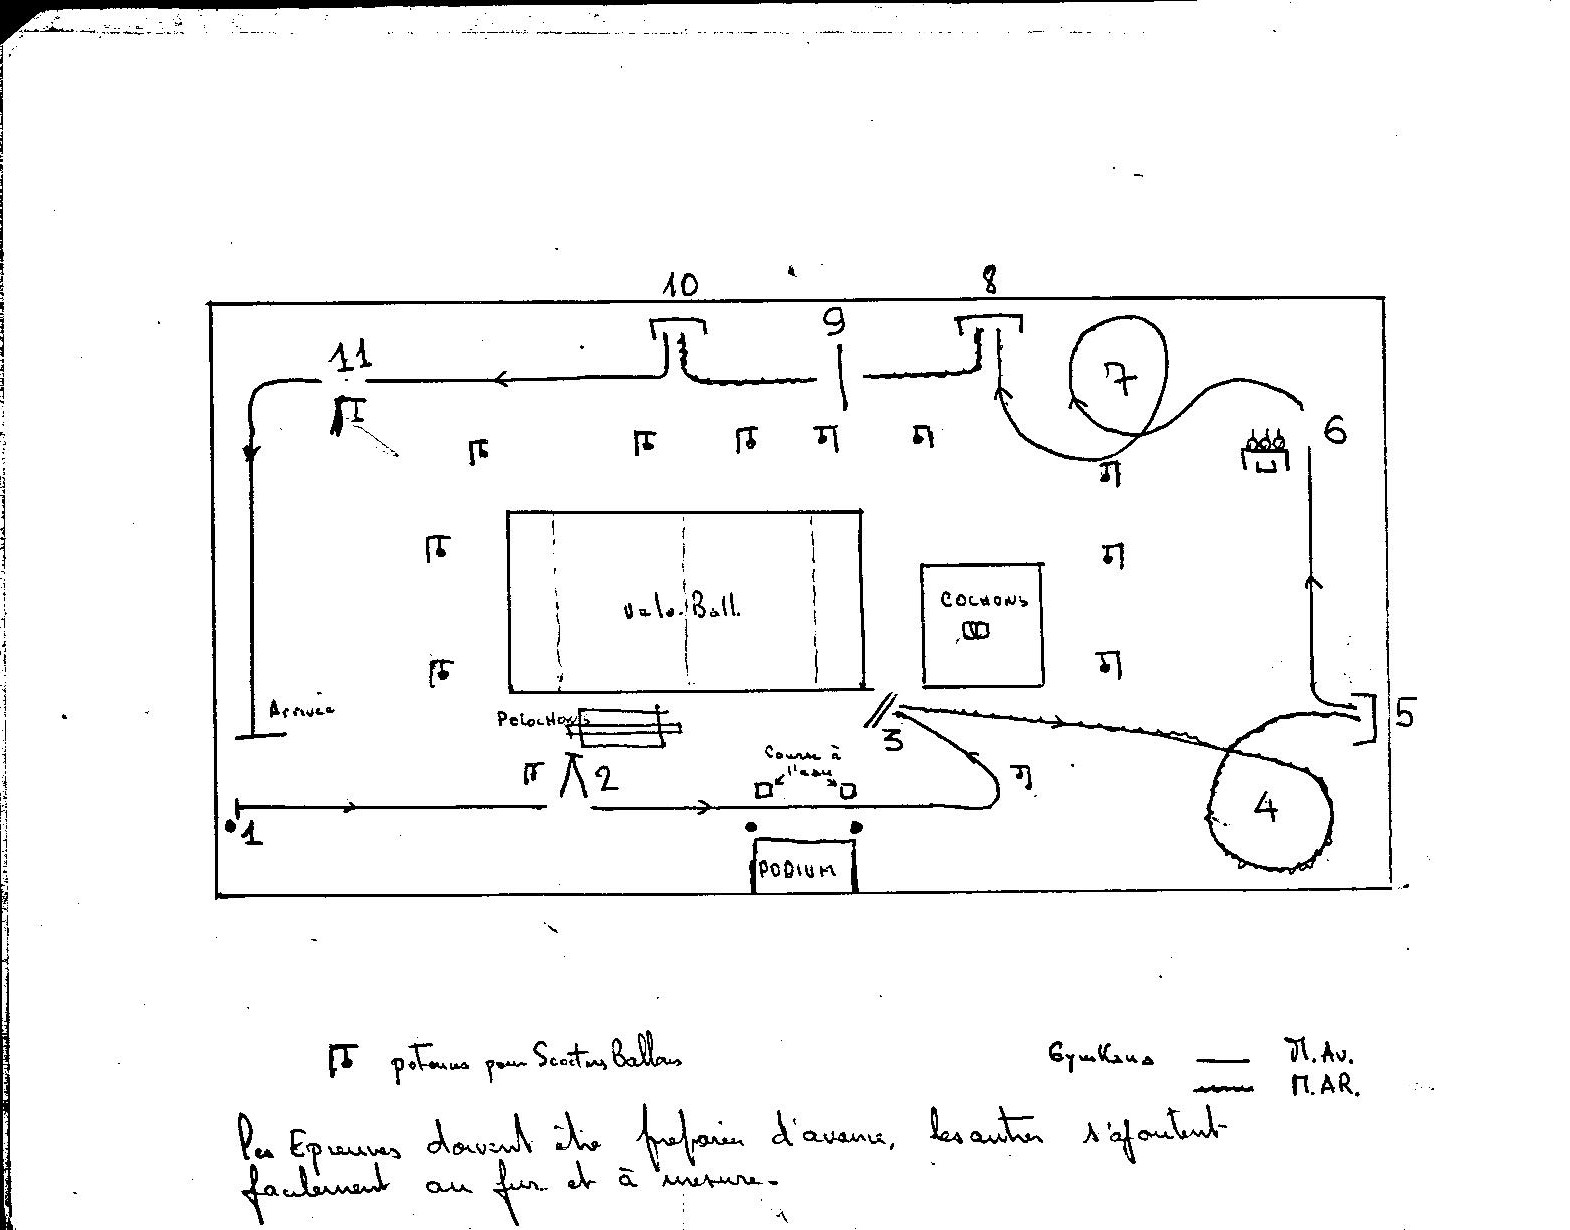 10
8
9
11
7
6
Velo-Ball.
COCHONS
Arrivée
PelochONS
5
3
Course à
l'eau
2
4
1
PODIUM
potences pour Scooters Ballons
Gymkana
M.Av.
M.AR.
Ces Epreuves doivent être préparées d'avance, les autres s'ajoutent
facilement au fur et à mesure.